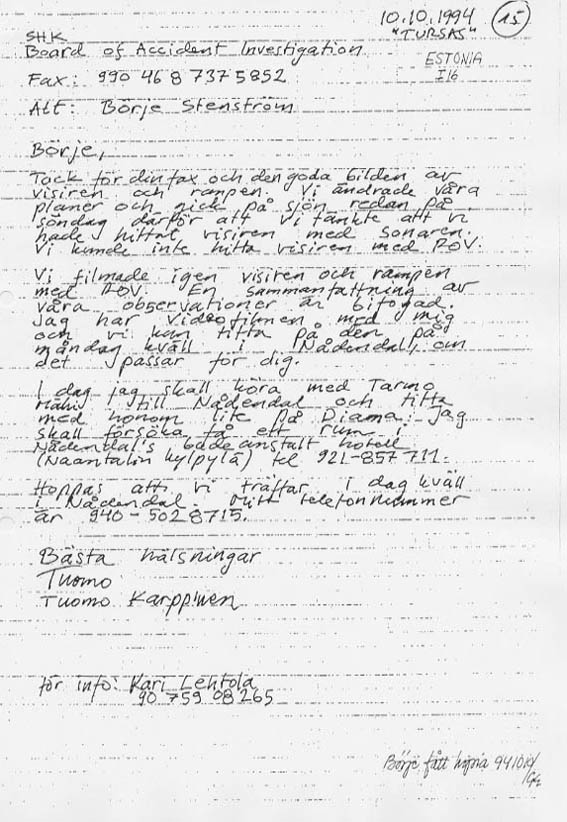 10.10.1994 15
"TURSAS"
SHK
Board of Accident Investigation
ESTONIA
I16
Fax: 990 46 8 737 5852
Att: Börje Stenström
Börje,
Tack för din fax och den goda bilden av
visiren och rampen. Vi ändrade våra
planer och gick på sjön redan på
söndag därför att vi tänkte att vi
hade hittat visiren med sonaren.
Vi kunde inte hitta visiren med ROV.
Vi filmade igen visiren och rampen
med ROV. En sammanfattning av
våra observationer är bifogad.
Jag har videofilmen med mig
och vi kan titta på den på
måndag kväll i Nådendal, om
det passar för dig.
I dag jag skall köra med Tarmo
till Nådendal och titta
med honom lite på Diana. Jag
skall försöka få ett rum i
Nådendal's badeanstalt hotell
(Naantalin kylpylä) tel 921-857 711.
Hoppas att vi träffar i dag kväll
i Nådendal. Mitt telefonnummer
är 940-5028715.
Bästa hälsningar
Tuomo
Tuomo Karppinen
för info: Kari Lehtola
90 759 08 265
Börje fått kopia